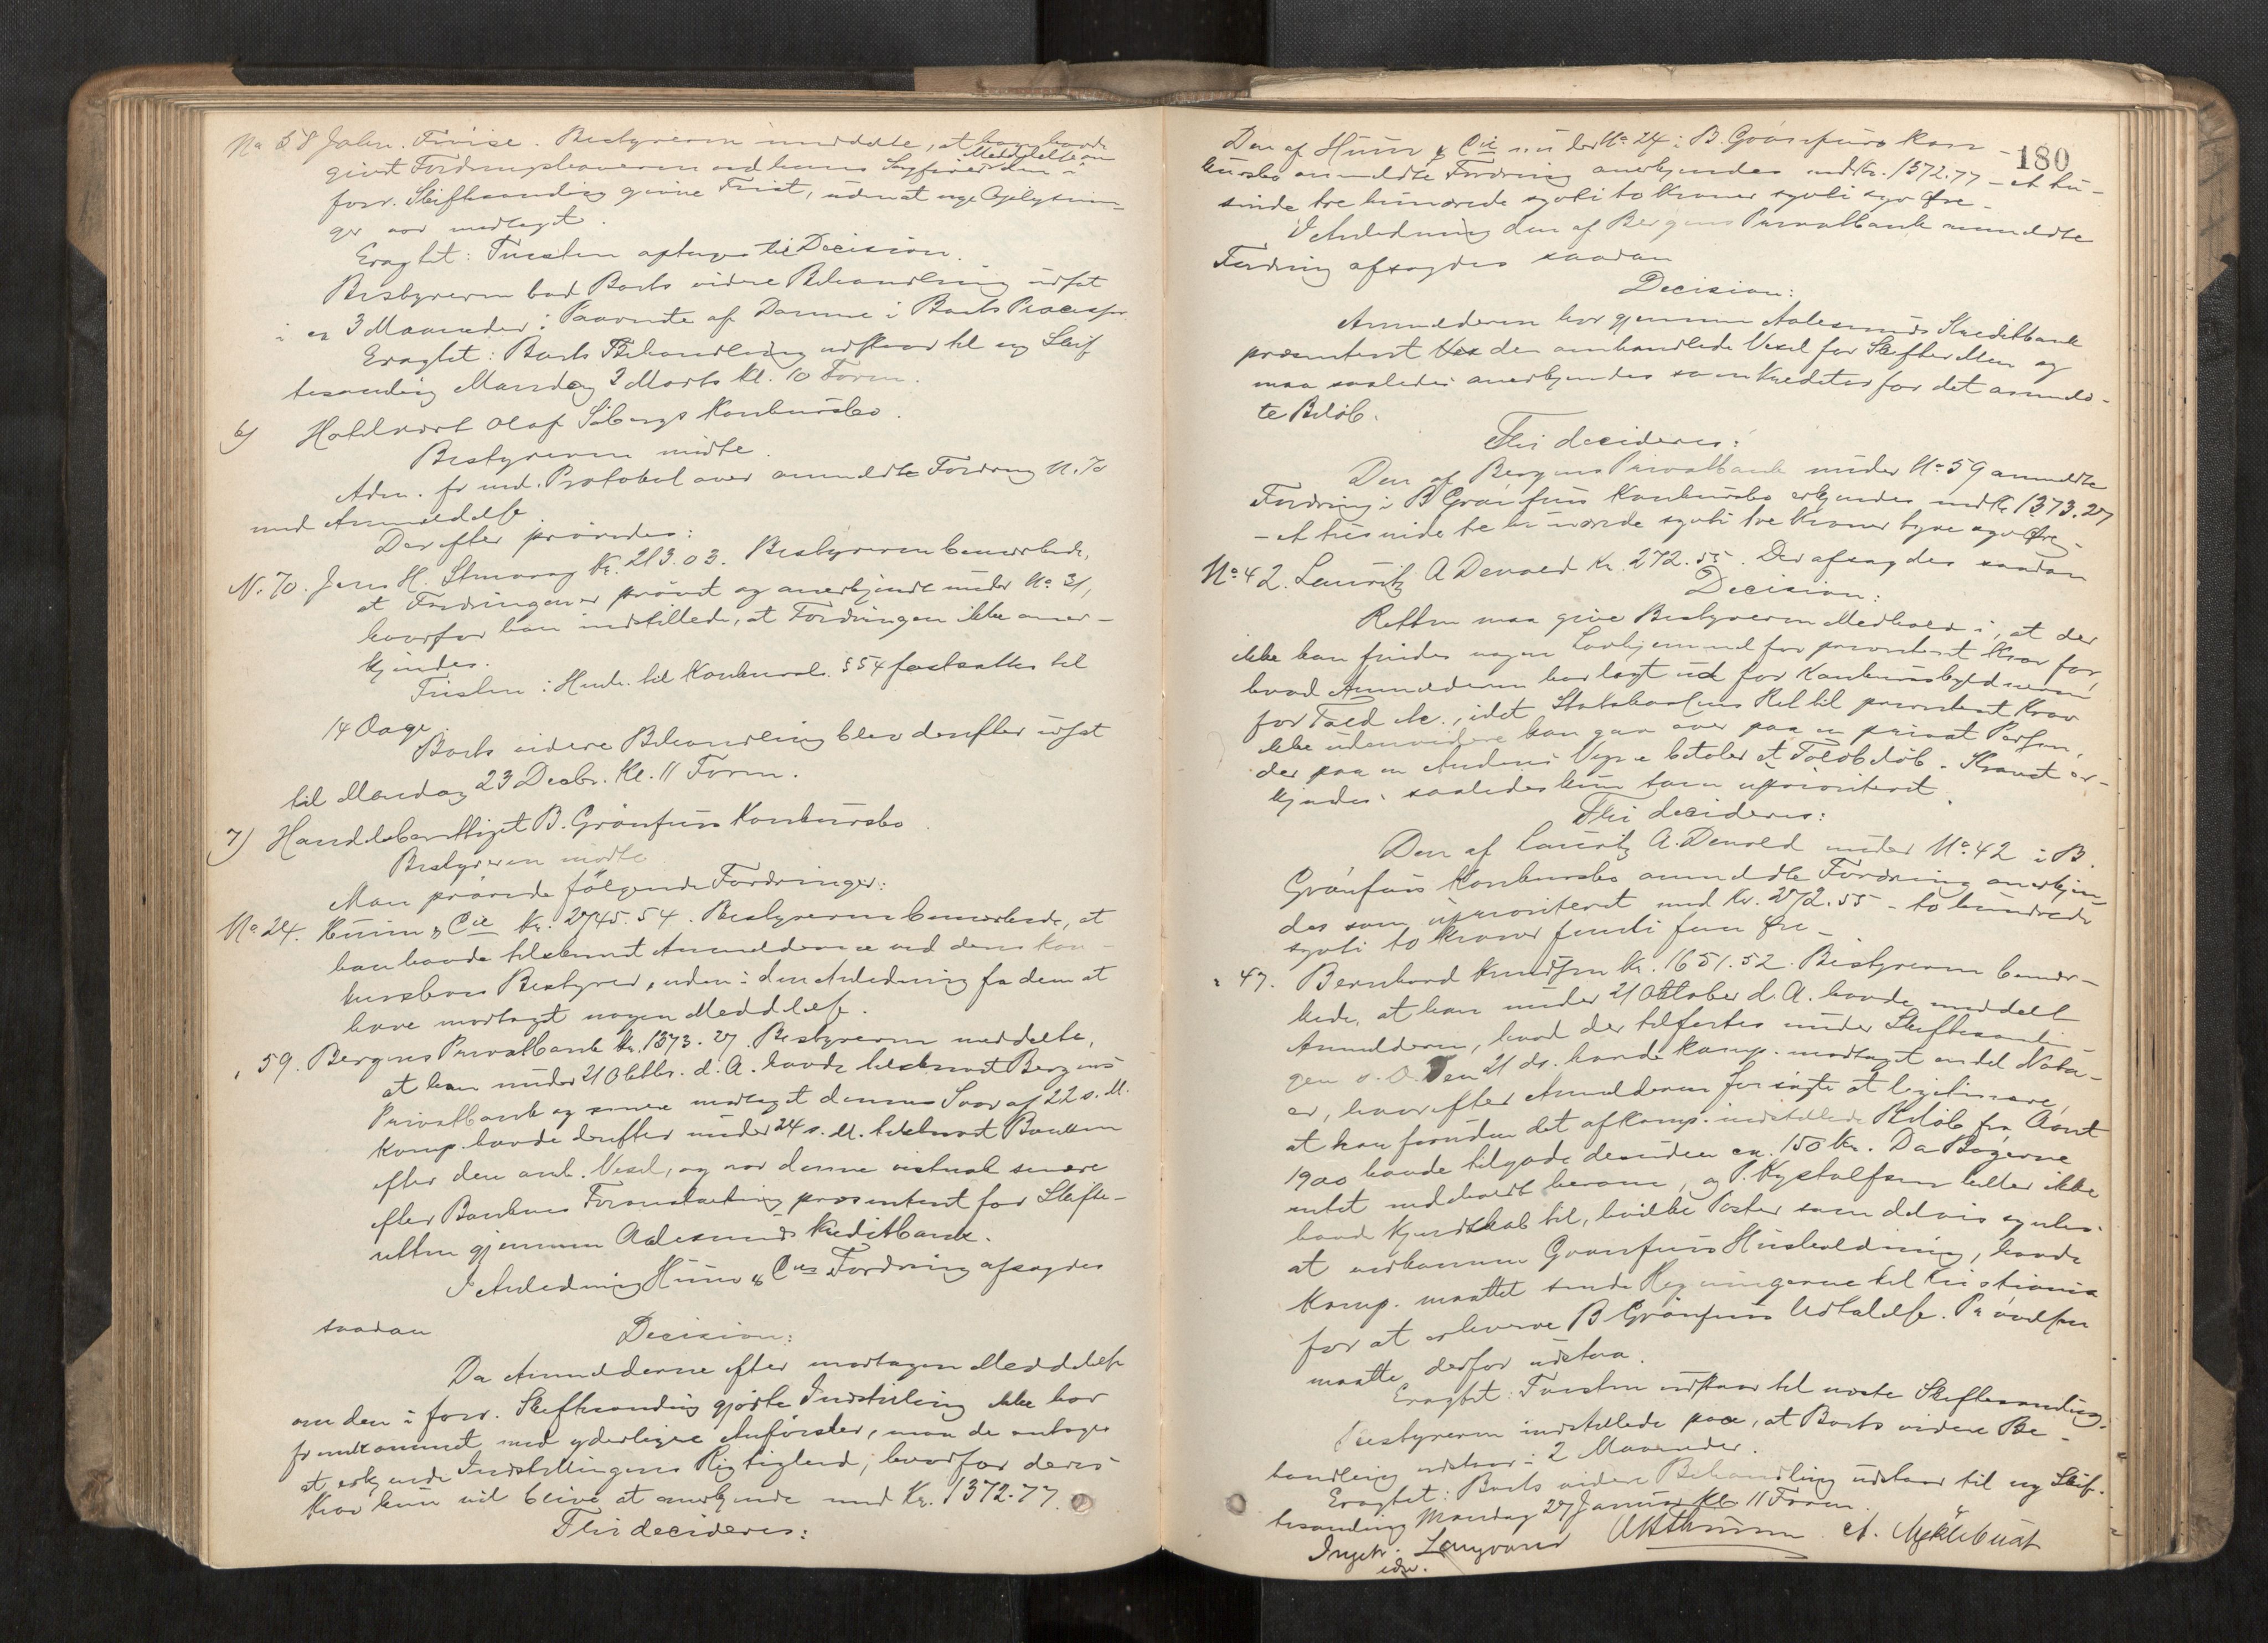 No 58 Johs. Friise. Bestyreren meddelte, at han havde
givet Fordringshaveren ved hans Sagfører Meddelelse om den i
forr. Skiftesamling givne Frist, uden at nye Oplysnin-
ger var modtaget.
Eragtet: Tvisten optages til Decision.
Bestyreren bad Boets videre Behandling udsat
i ca 3 Maaneder i Paavente af Domme i Boets Processer.
Eragtet: Boets Behandling udstaar til ny Skif-
tesamling Mandag 2 Marts Kl. 10 Form.
6) Hotelvært Olaf Söbergs Konkursbo.
Bestyreren mødte.
Adm. fr. med. Protokol over anmeldte Fordring N. 70
med Anmeldelse
Derefter prøvedes:
N. 70. Jens H. Kr. 213.03. Bestyreren bemærkede,
at Fordringen er prøvet og anerkjendt under No 31,
hvorfor han indstillede, at Fordringen ikke aner-
kjendes.
Fristen i Henh. til Konkursl. § 54 fastsattes til
14 Dage.
Boets videre Behandling blev derefter udsat
til Mandag 23 Decbr. Kl. 11 Form.
7) Handelsberettiget B. Grönfurs Konkursbo.
Bestyreren mødte
Man prøvede følgende Fordringer:
No 24. Huun & Cie Kr. 2745.54. Bestyreren bemærkede, at
han havde tilskrevet Anmelderne ved deres Kon-
kursbos Bestyrer, uden i den Anledning fra dem at
have modtaget nogen Meddelelse.
" 59. Bergens Privatbank Kr. 1373.27. Bestyreren meddelte,
at han under 21 Oktbr. d. A. havde tilskrevet Bergens
Privatbank og senere modtaget dennes Svar af 22 s. M.
Komp. havde derefter under 24 s. M. tilskrevet Banken
efter den omh. Vexel, og var denne senere
efter Bankens Foranstaltning præsenteret for Skifte-
retten gjennem Aalesunds Kreditbank.
I Anledning Huun & Cies Fordring afsagdes
saadan
Decision:
Da Anmelderne efter modtagen Meddelelse
om den i forr. Skiftesamling gjorte Indstilling ikke har
fremkommet med yderligere Anførsler, maa de antages
at erkjende Indstillingens Rigtighed, hvorfor deres
Krav kun vil blive at anerkjende med Kr. 1372.77.
Thi decideres:
180
Den af Huun & Cie under No 24 i B. Grönfurs Kon-
kursbo anmeldte Fordring anerkjendes med Kr. 1372.77 - et tu-
sinde tre hundrede sytti to Kroner sytti syv Øre -
I Anledning den af Bergens Privatbank anmeldte
Fordring afsagdes saadan
Decision:
Anmelderen har gjennem Aalesunds Kreditbank
præsenteret den omhandlede Vexel for Skifteretten og
maa saaledes anerkjendes som Kreditor for det anmeld-
te Beløb.
Thi decideres:
Den af Bergens Privatbank under No 59 anmeldte
Fordring i B Grönfurs Konkursbo erkjendes med Kr 1373.27
- et tusinde tre hundrede sytti tre Kroner tyve syv Øre -
No 42. Lauritz A Devold Kr. 272.55. Der afsagdes saadan
Decision:
Retten maa give Bestyreren Medhold i, at der
ikke kan findes nogen Lovhjemmel for prioriteret Krav for,
hvad Anmelderen har lagt ud for Konkursskyldneren
for Told etc., idet Statskassens Ret til prioriteret Krav
ikke udenvidere kan gaa over paa en privat Person,
der paa en Andens Vegne betaler et Toldbeløb. Kravet er-
kjendes saaledes kun som uprioriteret.
Thi decideres:
Den af Lauritz A. Devold under No 42 i B.
Grönfurs Konkursbo anmeldte Fordring anerkjen-
des som uprioriteret med Kr. 272.55 - to hundrede
sytti to Kroner femti fem Øre -
" 47. Bernhard Knudsen Kr. 1651.52. Bestyreren bemær-
kede, at han under 21 Oktober d. A. havde meddelt
Anmelderen, hvad der tilførtes under Skiftesamlin-
gen s. D. Den 21 ds. havde Komp. modtaget en del Nota-
er, hvorefter Anmelderen forsøgte at legitimere,
at han foruden det af Komp. indstillede Beløb fra Aaret
1900 havde tilgode desuden ca. 150 Kr. Da Bøgerne
intet indeholdt herom, og P. Rystolfsen heller ikke
havde Kjendskab til, hvilke Poster som delvis syntes
at vedkomme Grönfurs Husholdning, havde
Komp. maattet sende Regningerne til Kristiania
for at erhverve B Grönfurs Udtalelse. Prøvelsen
maatte derfor udstaa.
Eragtet: Tvisten udstaar til næste Skiftesamling.
Bestyreren indstillede paa, at Boets videre Be-
handling udstaar i 2 Maaneder.
Eragtet: Boets videre Behandling udstaar til ny Skif-
tesamling Mandag 27 Januar Kl. 11 Form.
Langvand A. Myklebust
edsv.